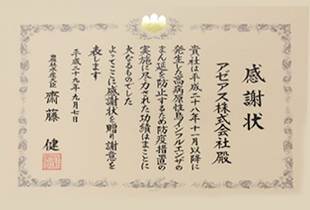 感謝状
アゼアス株式会社殿
貴社は平成二十八年十一月以降に
発生した高病原性鳥インフルエンザの
まん延を防止するため防疫措置の
実施に尽力された功績はまことに
大なるものでした
よってここに感謝状を贈り謝意を
表します
平成二十九年九月七日
農林水産大臣 齋藤 健